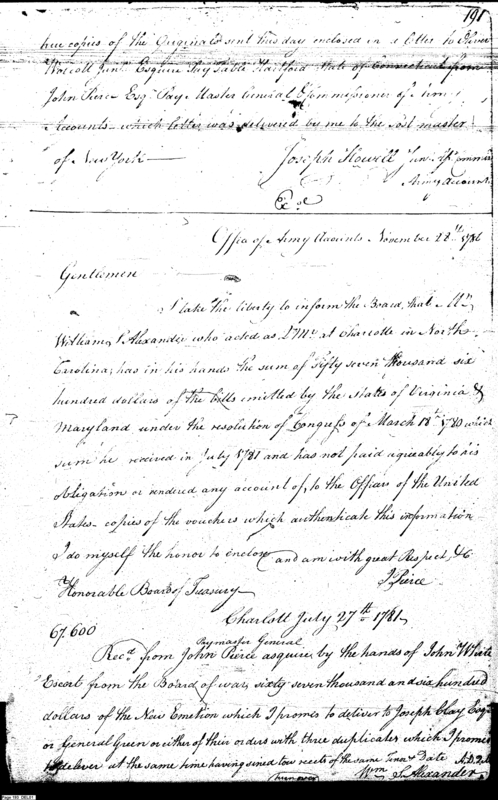 191
true copies of the Originals sent this day enclosed in a letter to Oliver
Wolcott Junr. Esquire Pay Table Hartford State of Connecticut from
John Pierce Esqr. Pay Master General & Commissioner of Army
Accounts which letter was delivered by me to the post master
of New York
Joseph Howell Junr.
Army Accounts
Office of Army Accounts November 28th. 1786
Gentlemen
I take the liberty to inform the Board, that Mr.
William S Alexander who acted as at Charlotte in North
Carolina, has in his hands the sum of Fifty seven thousand six
hundred dollars of the bills emitted by the States of Virginia &
Maryland under the resolution of Congress of March 18th. 1780 which
sum he received in July 1781 and has not paid agreeably to his
obligation or rendered any account of, to the Officers of the United
States - copies of the vouchers which authenticate this information
I do myself the honor to enclose and am with great Respect, &c
J Pierce
Honorable Board of Treasury
Charlott July 27th 1781
67.600
Paymaster General
Recd. from John Pierce asquire, by the hands of John White
Escort from the Board of war, sixty seven thousand and six hundred
dollars of the New Emetion which I promes to deliver to Joseph Clay Esqr.
or General Green or either of their orders with three duplicates which I promes
to deliver at the same time having sined tow recets of the same Tenor & Date
Wm S. Alexander